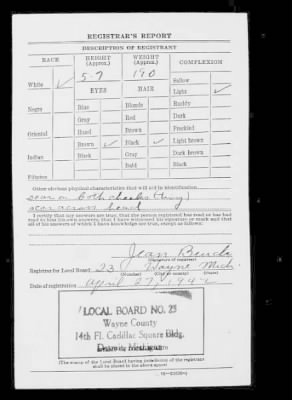 REGISTRAR'S REPORT
DESCRIPTION OF REGISTRANT
RACE HEIGHT (Approx.) WEIGHT (Approx.) COMPLEXION
5-7 190
White ✓ Sallow
EYES HAIR Light ✓
Negro Blue Blonde Ruddy
Gray Red Dark
Oriental Hazel Brown Freckled
Brown ✓ Black ✓ Light brown
Indian Black Gray Dark brown
Bald Black
Filipino
Other obvious physical characteristics that will aid in identification
scar on both cheeks
scar across
I certify that my answers are true; that the person registered has read or has had
read to him his own answers; that I have witnessed his signature or mark and that
all of his answers of which I have knowledge are true, except as follows:
Jean
(Signature of registrar)
Registrar for Local Board 23 Wayne Mich
(Number) (City or county) (State)
Date of registration April 27, 1942
LOCAL BOARD NO. 23
Wayne County
14th Fl. Cadillac Square Bldg.
Detroit, Michigan
(The stamp of the Local Board having jurisdiction of the registrant
shall be placed in the above space)